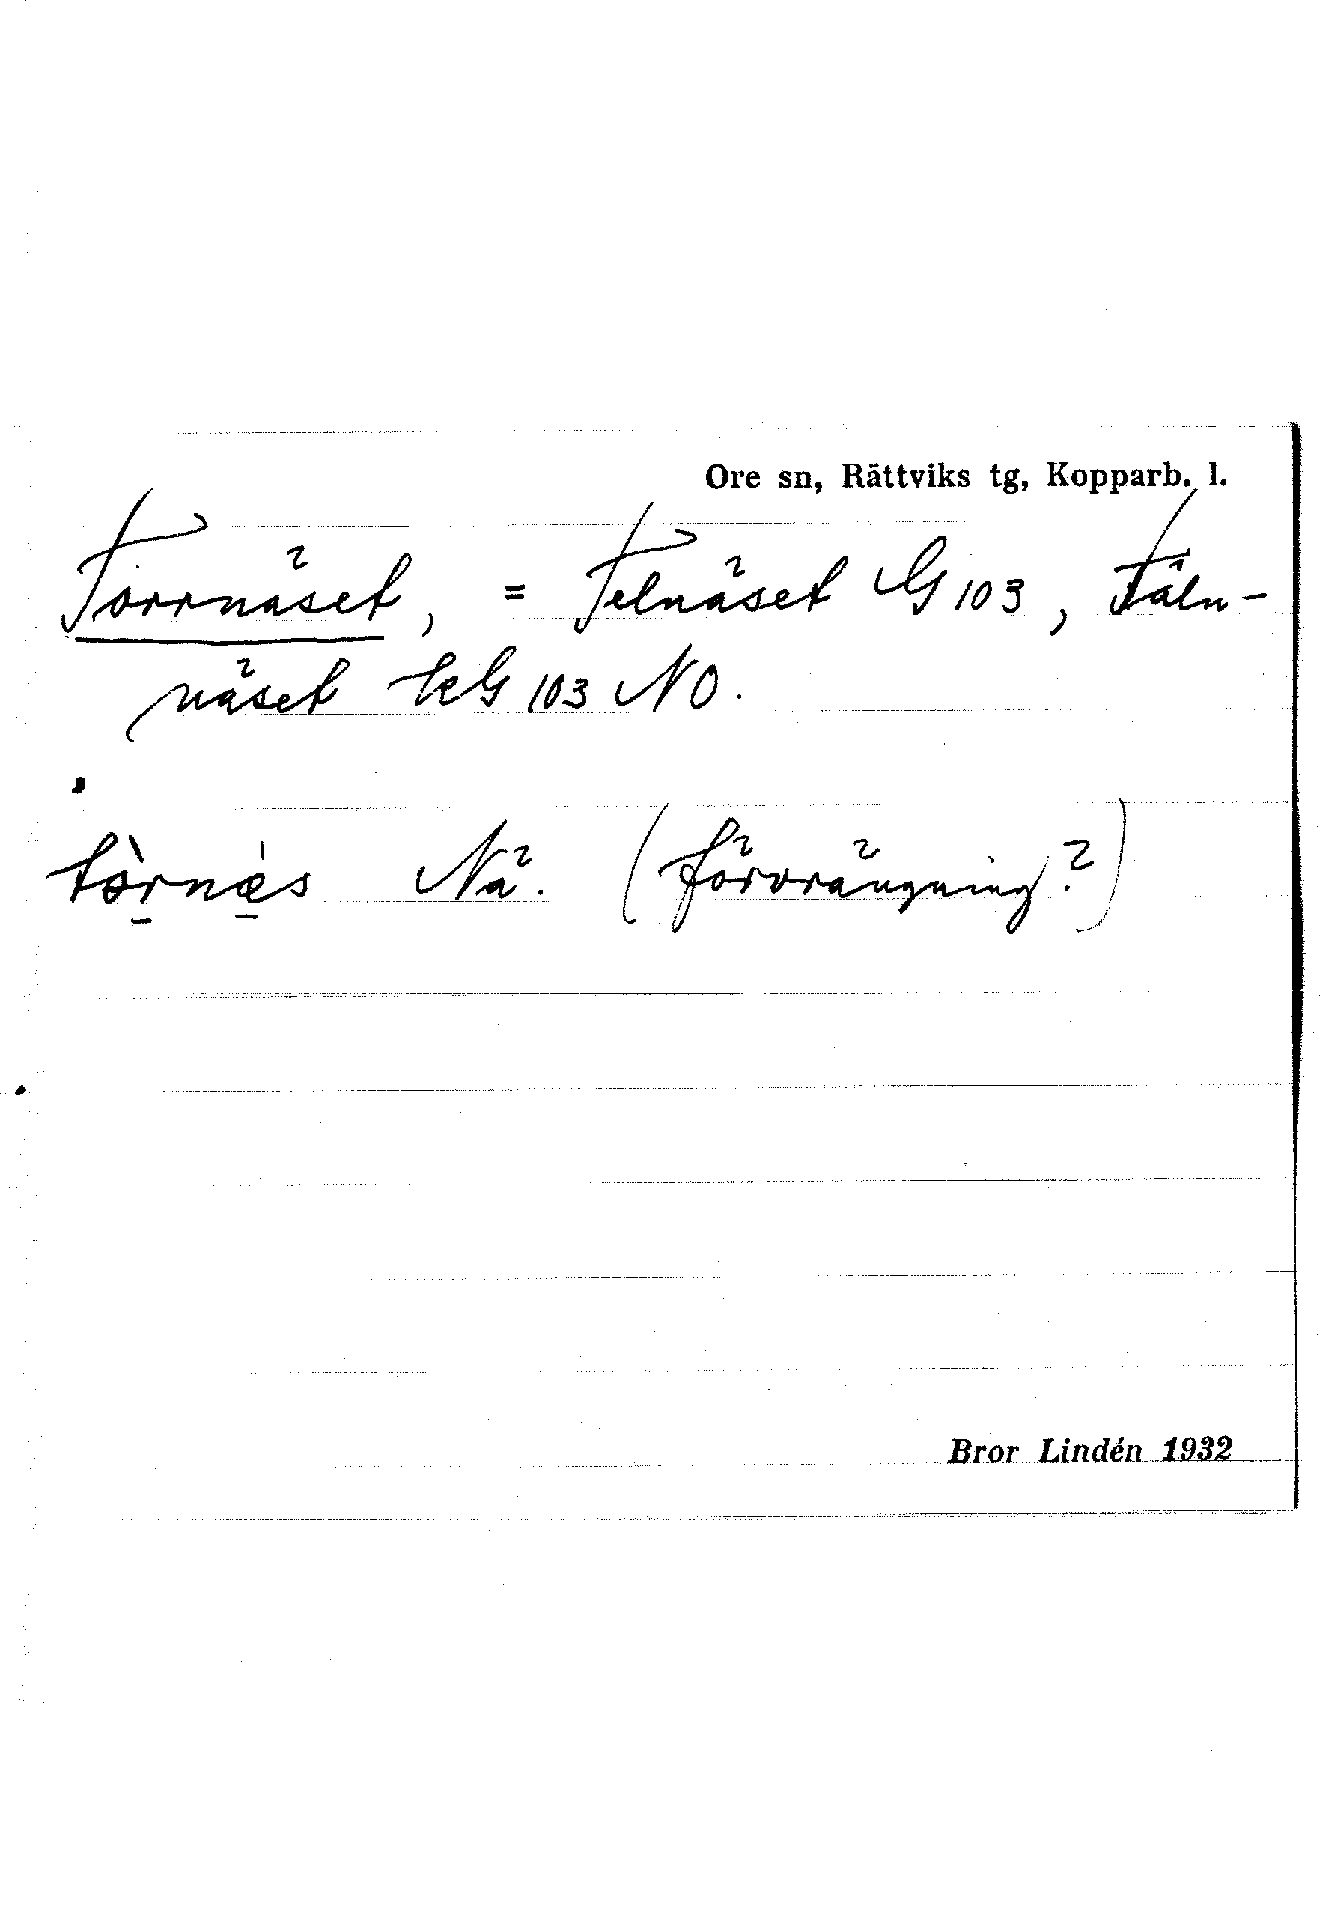 Ore sn, Rättviks tg, Kopparb. l.
Torrnäset, = Telnäset G 103, Täln-
näset EkG 103 NO.
tòrnæs Nä. (förvrängning?)
Bror Lindén 1932